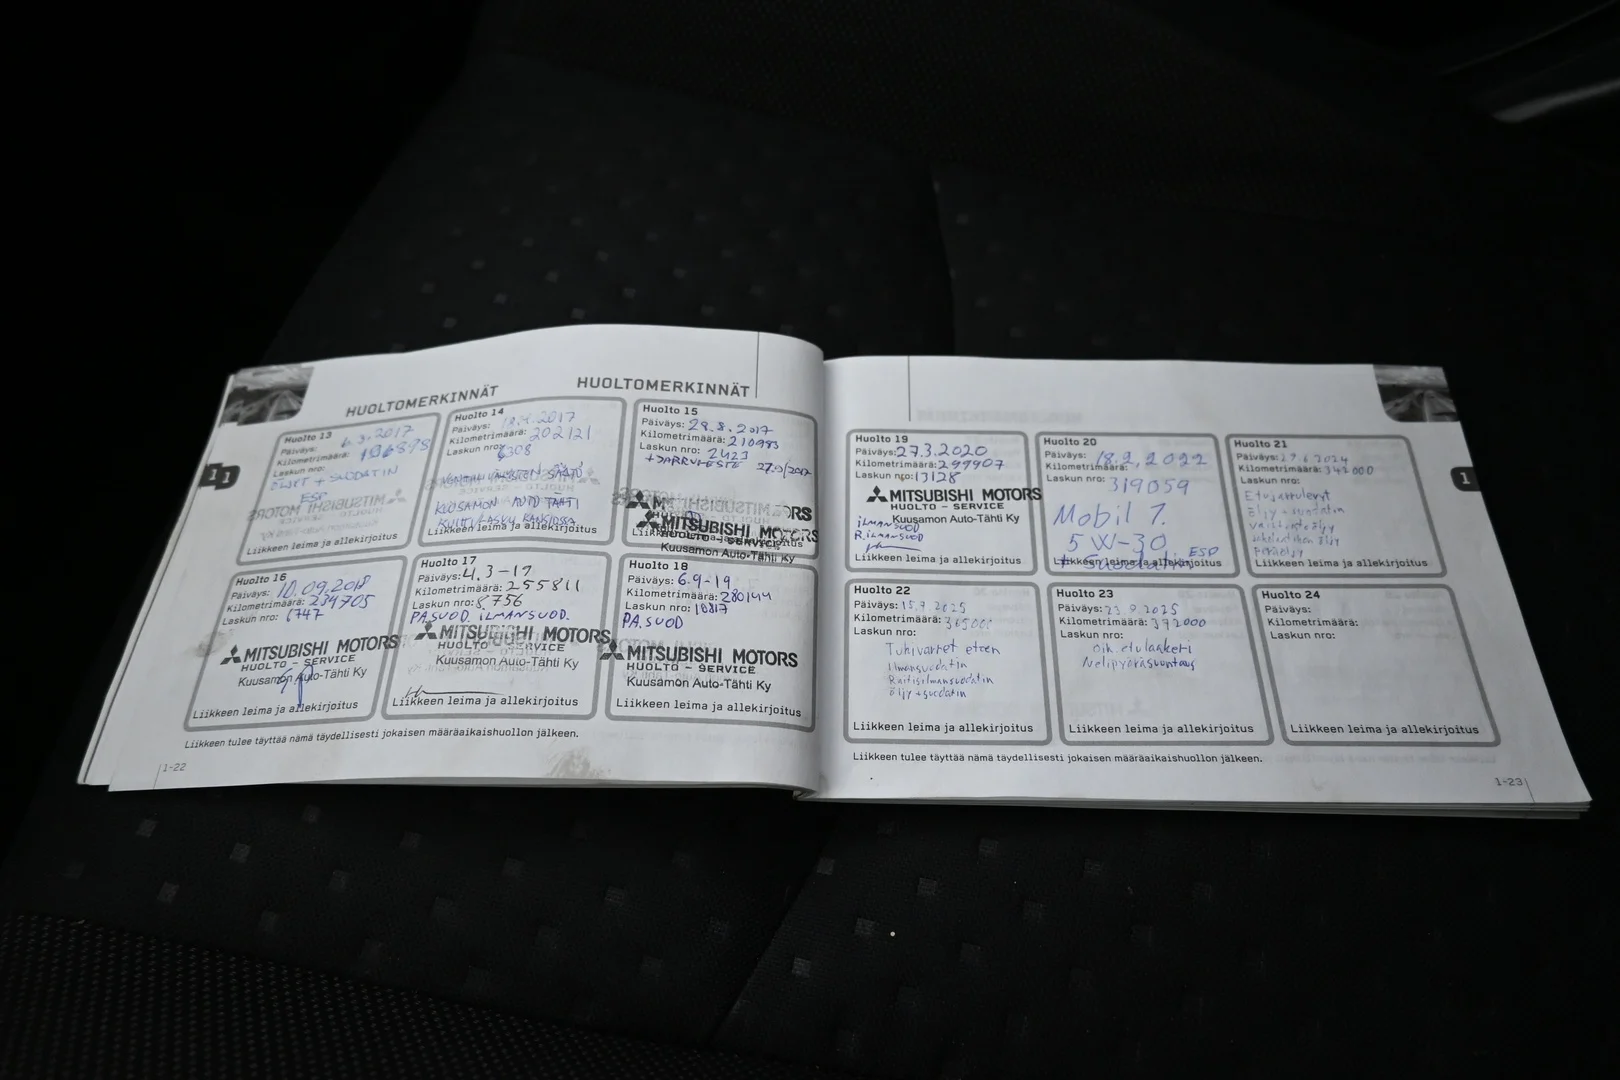 HUOLTOMERKINNÄT
HUOLTOMERKINNÄT
Huolto 13
Päiväys: 6.3.2017
Kilometrimäärä: 196898
Laskun nro:
ÖLJYT + SUODATIN
ESP
Liikkeen leima ja allekirjoitus
Huolto 14
Päiväys: 2017
Kilometrimäärä: 202121
Laskun nro: 6308
SÄÄTÖ
KUUSAMON AUTO TÄHTI
KUITTI/LASKU KANSIOSSA
Liikkeen leima ja allekirjoitus
Huolto 15
Päiväys: 29.8.2017
Kilometrimäärä: 210983
Laskun nro: 2423
+JARRUNESTE 27.9/2017
MITSUBISHI MOTORS
HUOLTO - SERVICE
Kuusamon Auto-Tähti Ky
Huolto 16
Päiväys: 10.09.2018
Kilometrimäärä: 234705
Laskun nro: 6747
MITSUBISHI MOTORS
HUOLTO - SERVICE
Kuusamon Auto-Tähti Ky
Liikkeen leima ja allekirjoitus
Huolto 17
Päiväys: 4.3-19
Kilometrimäärä: 255811
Laskun nro: 8756
PA.SUOD. ILMANSUOD.
MITSUBISHI MOTORS
HUOLTO - SERVICE
Kuusamon Auto-Tähti Ky
Liikkeen leima ja allekirjoitus
Huolto 18
Päiväys: 6.9-19
Kilometrimäärä: 280144
Laskun nro: 10817
PA.SUOD
MITSUBISHI MOTORS
HUOLTO - SERVICE
Kuusamon Auto-Tähti Ky
Liikkeen leima ja allekirjoitus
Liikkeen tulee täyttää nämä täydellisesti jokaisen määräaikaishuollon jälkeen.
1-22
Huolto 19
Päiväys: 27.3.2020
Kilometrimäärä: 299907
Laskun nro: 13128
MITSUBISHI MOTORS
HUOLTO - SERVICE
Kuusamon Auto-Tähti Ky
ILMANSUOD
R.ILMANSUOD
Liikkeen leima ja allekirjoitus
Huolto 20
Päiväys: 18.2.2022
Kilometrimäärä:
Laskun nro: 319059
Mobil 1.
5W-30
ESP
+ Suodatin
Liikkeen leima ja allekirjoitus
Huolto 21
Päiväys: 27.6.2024
Kilometrimäärä: 342000
Laskun nro:
Etujarrulevyt
Öljy + suodatin
vaihteistoöljy
jakolaatikon öljy
peräöljy
Liikkeen leima ja allekirjoitus
1
Huolto 22
Päiväys: 15.9.2025
Kilometrimäärä: 365000
Laskun nro:
Tukivarret eteen
Ilmansuodatin
Raitisilmansuodatin
Öljy + suodatin
Liikkeen leima ja allekirjoitus
Huolto 23
Päiväys: 23.9.2025
Kilometrimäärä: 372000
Laskun nro:
Oik. etulaakeri
Nelipyöräsuuntaus
Liikkeen leima ja allekirjoitus
Huolto 24
Päiväys:
Kilometrimäärä:
Laskun nro:
Liikkeen leima ja allekirjoitus
Liikkeen tulee täyttää nämä täydellisesti jokaisen määräaikaishuollon jälkeen.
1-23